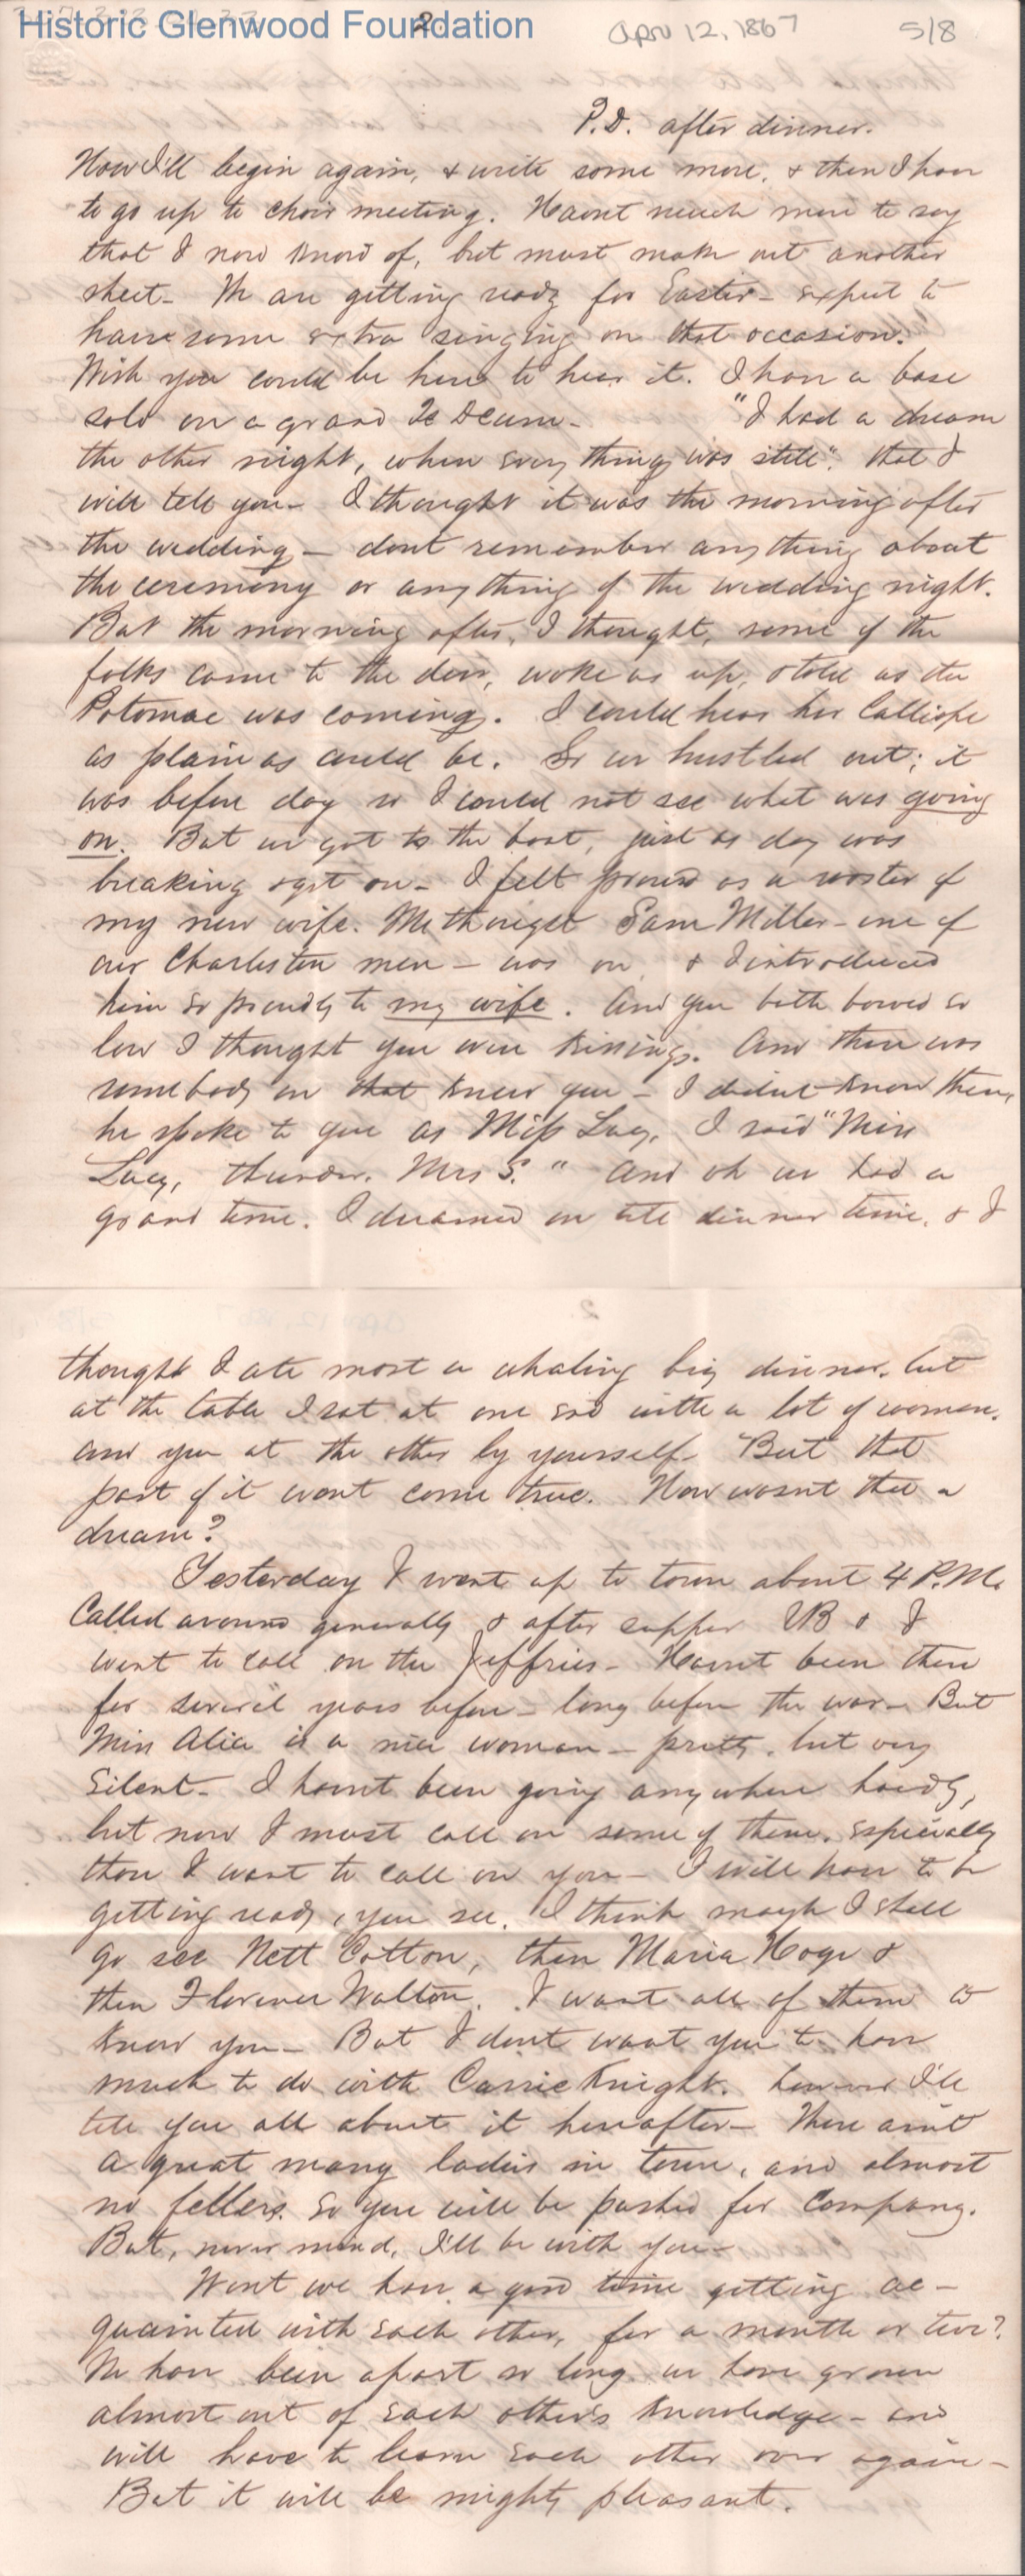 Historic Glenwood Foundation
2
Apr 12, 1867
5/8
P.D. after dinner.
Now I'll begin again, & write some more, & then I have
to go up to choir meeting. Havnt much more to say
that I now know of, but must make out another
sheet - We are getting ready for Easter - expect to
have some extra singing on that occasion.
Wish you could be here to hear it. I have a base
solo on a grand Te Deum - "I had a dream
the other night, when every thing was still". that I
will tell you - I thought it was the morning after
the wedding - dont remember anything about
the ceremony or anything of the wedding night.
But the morning after, I thought, some of the
folks came to the door, woke us up, & told us the
Potomac was coming. I could hear her Calliope
as plain as could be. So we hustled out; it
was before day so I could not see what was going
on. But we got to the boat, just as day was
breaking & got on - I felt proud as a rooster of
my new wife. Methought Sam Miller - one of
our Charleston men - was on & I introduced
him so proudly to my wife. And you both bowed so
low I thought you were kissing. And there was
somebody on that knew you - I didnt know them,
he spoke to you as Miss Lucy, I said "Miss
Lucy, thunder. Mrs S." And oh we had a
grand time. I dreamed on till dinner time, & I
thought I ate most a whaling big dinner, but
at the table I sat at one end with a lot of women,
and you at the other by yourself - But that
part of it wont come true. Now wasnt that a
dream?
Yesterday I went up to town about 4 P.M.
Called around generally & after supper & I
went to call on the Jeffries - Havnt been there
for several years before - long before the war - But
Miss Alice is a nice woman - pretty, but very
silent - I havnt been going anywhere hardly,
but now I must call on some of them, especially
them I want to call on you - I will have to be
getting ready, you see. I think maybe I shall
go see Nett Cotton, then Maria Hoge &
then Florence Walton. I want all of them to
know you - But I dont want you to have
much to do with Carrie Knight. however I'll
tell you all about it hereafter - There aint
a great many ladies in town, and almost
no fellers. So you will be pushed for company.
But, never mind, I'll be with you -
Wont we have a good time getting ac-
quainted with each other, for a month or two?
We have been apart so long we have grown
almost out of each other's knowledge - and
will have to learn each other over again -
But it will be mighty pleasant.